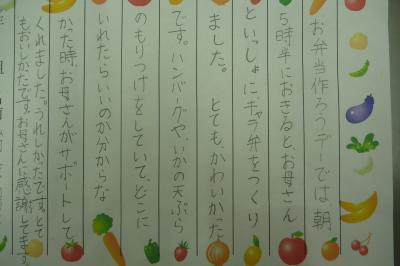 お弁当作ろうデーでは、朝
5時半におきると、お母さん
といっしょに、キャラ弁をつくり
ました。とても、かわいかった
です。ハンバーグや、いかの天ぷら
のもりつけをしていて、どこに
いれたらいいのか分からな
かった時、お母さんがサポートして、
くれました。うれしかったです。とて
もおいしかたです。お母さんに感謝してます